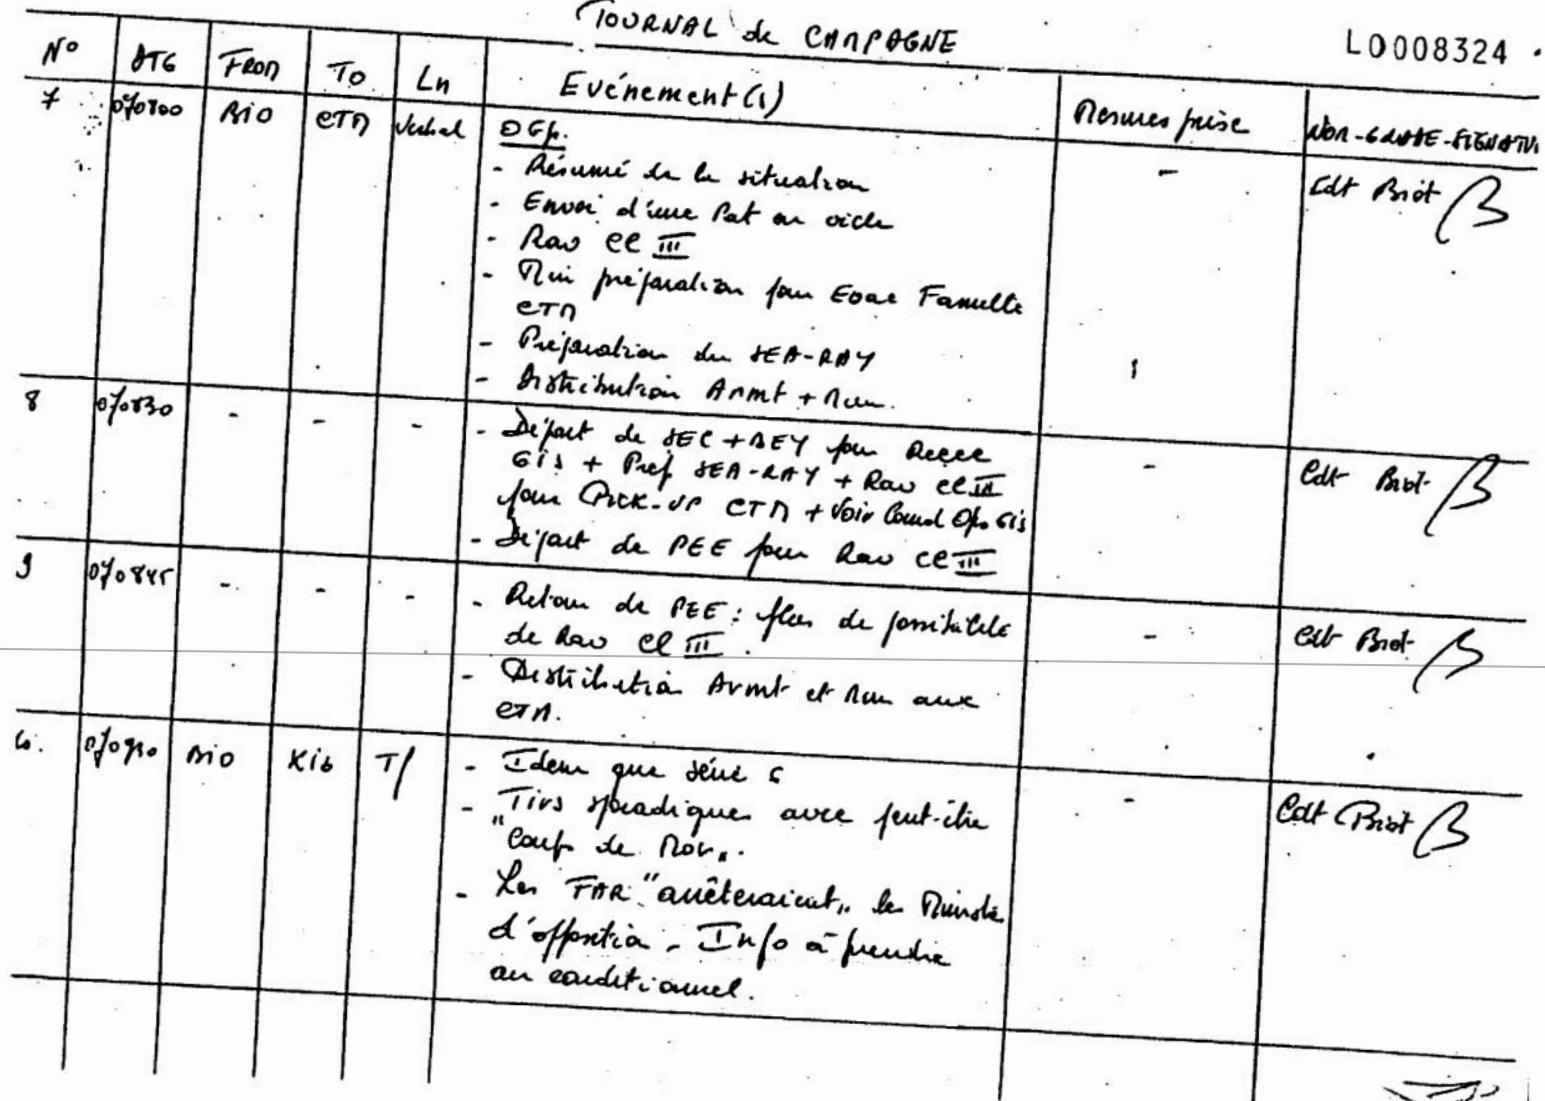 JOURNAL de CAMPAGNE
L0008324
N° DTG FROM To Ln Evénement(s) Mesures prise NOM-GRADE-SIGNATU
7 070800 BIO CTM Verbal OGp. - Cdt Biot
- Résumé de la situation
- Envoi d'une Pat en
- Rav Cl III
- préparation pour Evac Famille
CTM
- Préparation du SEA-RAY
- Distribution Armt + Mun.
8 070830 - - - - Départ de SEC + DEY pour Recce - Cdt Biot
GIS + Prep SEA-RAY + Rav Cl III
pour PICK-UP CTM + Voir Comd Ops GIS
- Départ de PEE pour Rav Cl III
9 070845 - - - - Retour de PEE : plus de possibilité - Cdt Biot
de Rav Cl III.
- Distribution Armt et Mun aux
CTM.
10. BIO Kib T/ - Idem que série 6 - Cdt Biot
- Tirs sporadiques avec peut-être
"Coups de Mor".
- Les FAR "arrêteraient" les Ministres
d'opposition - Info à prendre
au conditionnel.